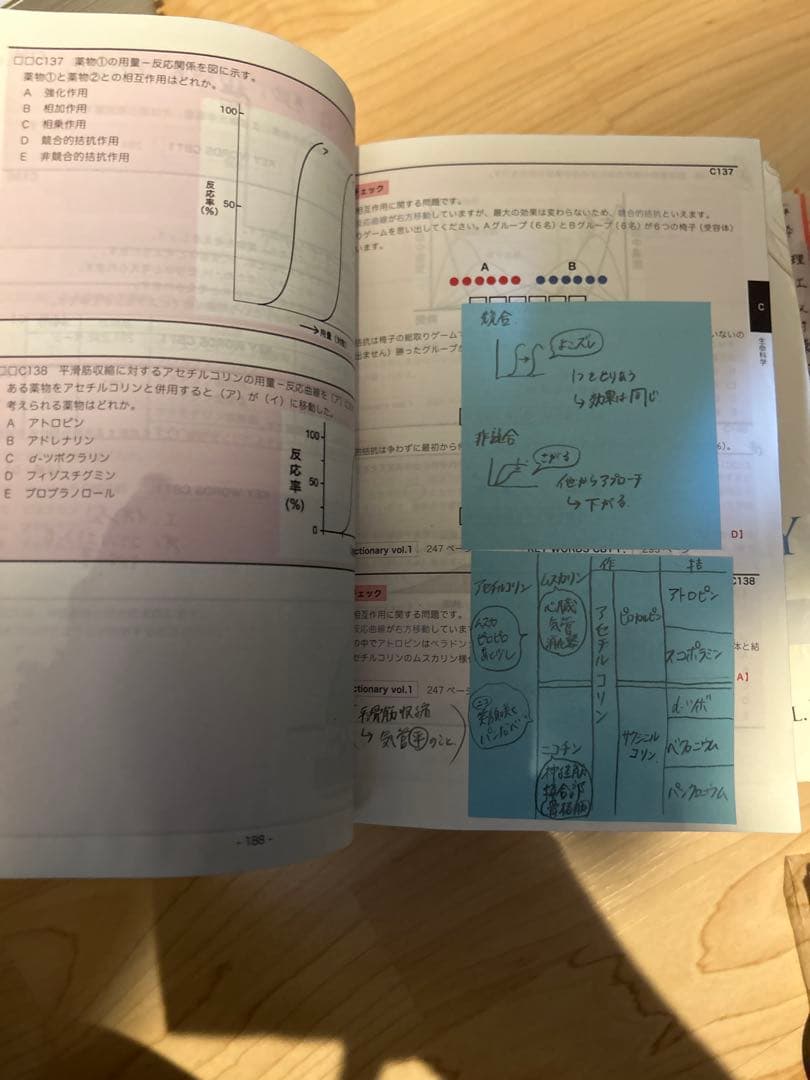 □□C137 薬物①の用量－反応関係を図に示す。
薬物①と薬物②との相互作用はどれか。
A 強化作用
B 相加作用
C 相乗作用
D 競合的拮抗作用
E 非競合的拮抗作用
100
50
反応率(%)
ア
→用量
□□C138 平滑筋収縮に対するアセチルコリンの用量－反応曲線を(ア)
ある薬物をアセチルコリンと併用すると(ア)が(イ)に移動した。
考えられる薬物はどれか。
A アトロピン
B アドレナリン
C d-ツボクラリン
D フィゾスチグミン
E プロプラノロール
100
50
0
反応率(%)
- 188 -
C137
チェック
相互作用に関する問題です。
反応曲線が右方移動していますが、最大の効果は変わらないため、競合的拮抗といえます。
りゲームを思い出してください。Aグループ(6名)とBグループ(6名)が6つの椅子(受容体)
います。
A B
抗は椅子の総取りゲームで
いないの
出ません)勝ったグループが
抗は争わずに最初から
6)。
D]
ctionary vol.1 247 ペー
C
生命科学
競合
よこズレ
1つをとりあう
↳効果は同じ
非競合
さがる
他からアプローチ
↳下がる
C138
チェック
相互作用に関する問題です。
反応曲線が右方移動していま
の中でアトロピンはベラドン
体と結
セチルコリンのムスカリン様
A]
ctionary vol.1 247 ペー
平滑筋収縮
↳気管平のこと
作 拮
アセチルコリン
ムスカリン
心臓
気管
アセチルコリン
ピロカルピン
アトロピン
スコポラミン
ニコチン
神経筋
接合部
(骨格筋)
サクシニルコリン
d-ツボ
ベクロニウム
パンクロニウム